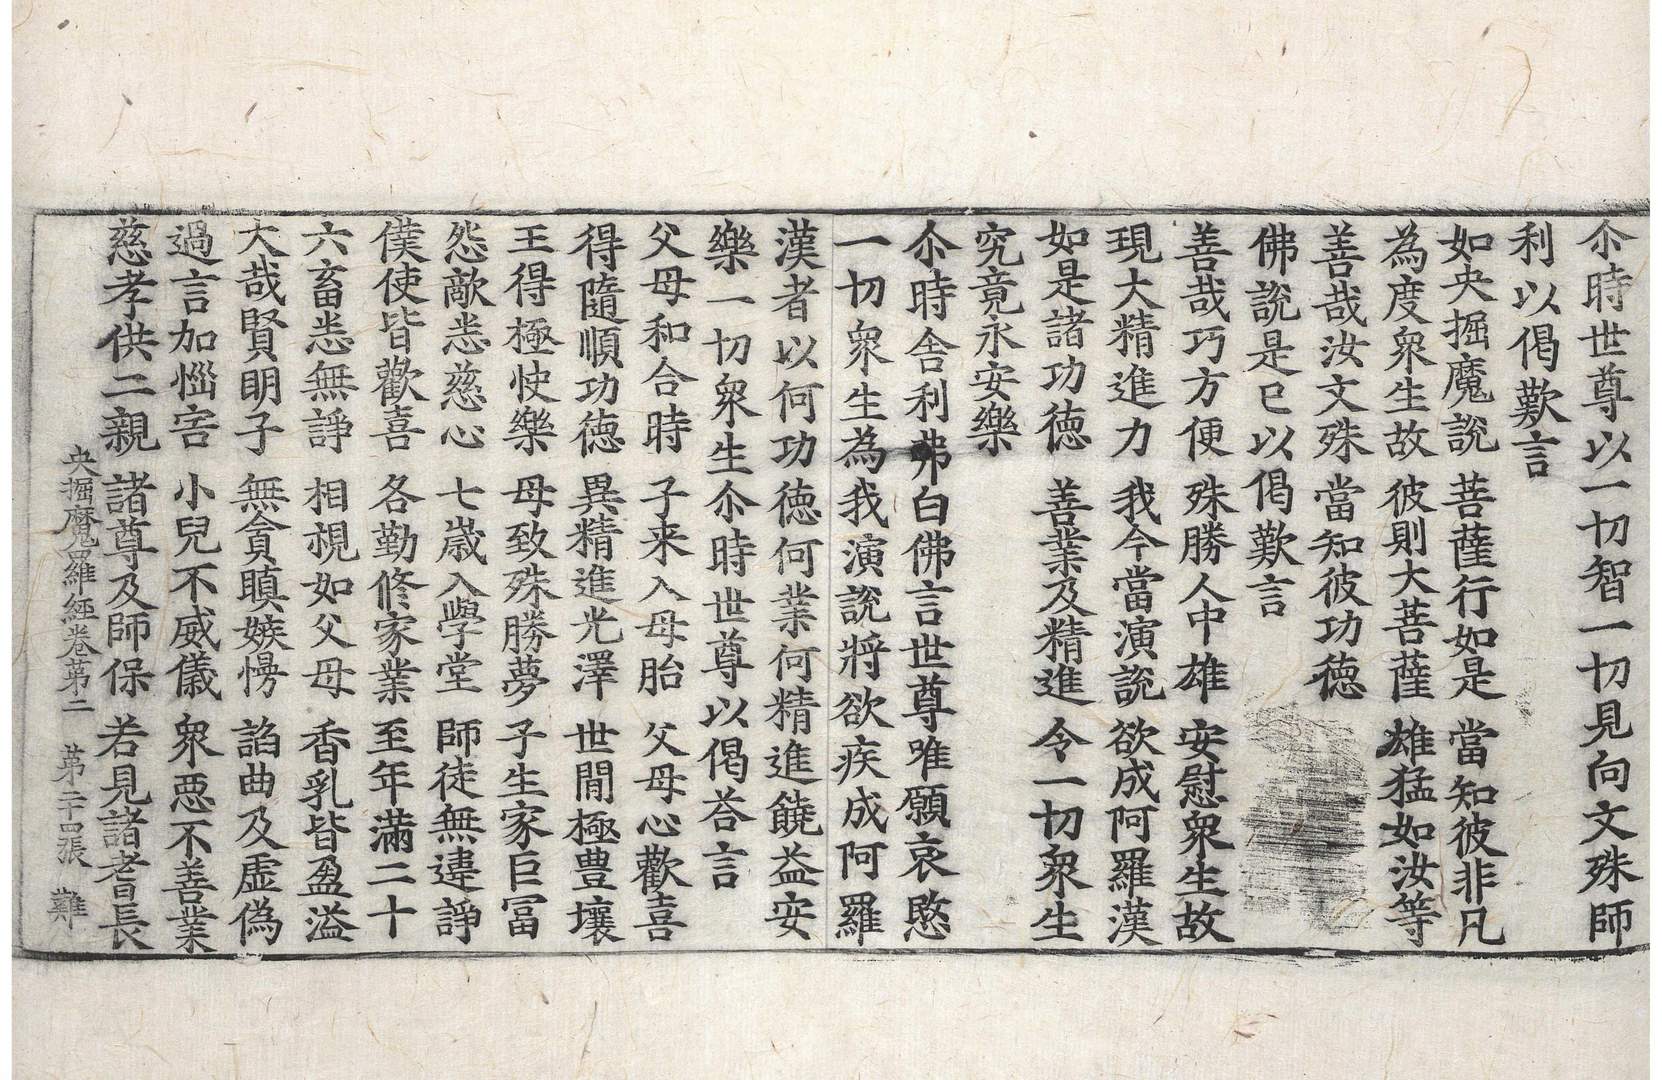 尒時世尊以一切智一切見向文殊師
利以偈歎言
如央掘魔說 菩薩行如是 當知彼非凡
為度衆生故 彼則大菩薩 雄猛如汝等
善哉汝文殊 當知彼功德
佛說是已以偈歎言
善哉巧方便 殊勝人中雄 安慰衆生故
現大精進力 我今當演說 欲成阿羅漢
如是諸功德 善業及精進 令一切衆生
究竟永安樂
尒時舍利弗白佛言世尊唯願哀愍
一切衆生為我演說將欲疾成阿羅
漢者以何功德何業何精進饒益安
樂一切衆生尒時世尊以偈荅言
父母和合時 子来入母胎 父母心歡喜
得隨順功德 異精進光澤 世間極豊壤
王得極快樂 母致殊勝夢 子生家巨冨
怨敵恙慈心 七歲入學堂 師徒無違諍
僕使皆歡喜 各勤修家業 至年滿二十
六畜恙無諍 相視如父母 香乳皆盈溢
大哉賢明子 無貪瞋嫉慢 諂曲及虛偽
過言加惱害 小兒不威儀 衆惡不善業
慈孝供二親 諸尊及師保 若見諸耆長
央掘魔羅經卷第二 第二十四張 難